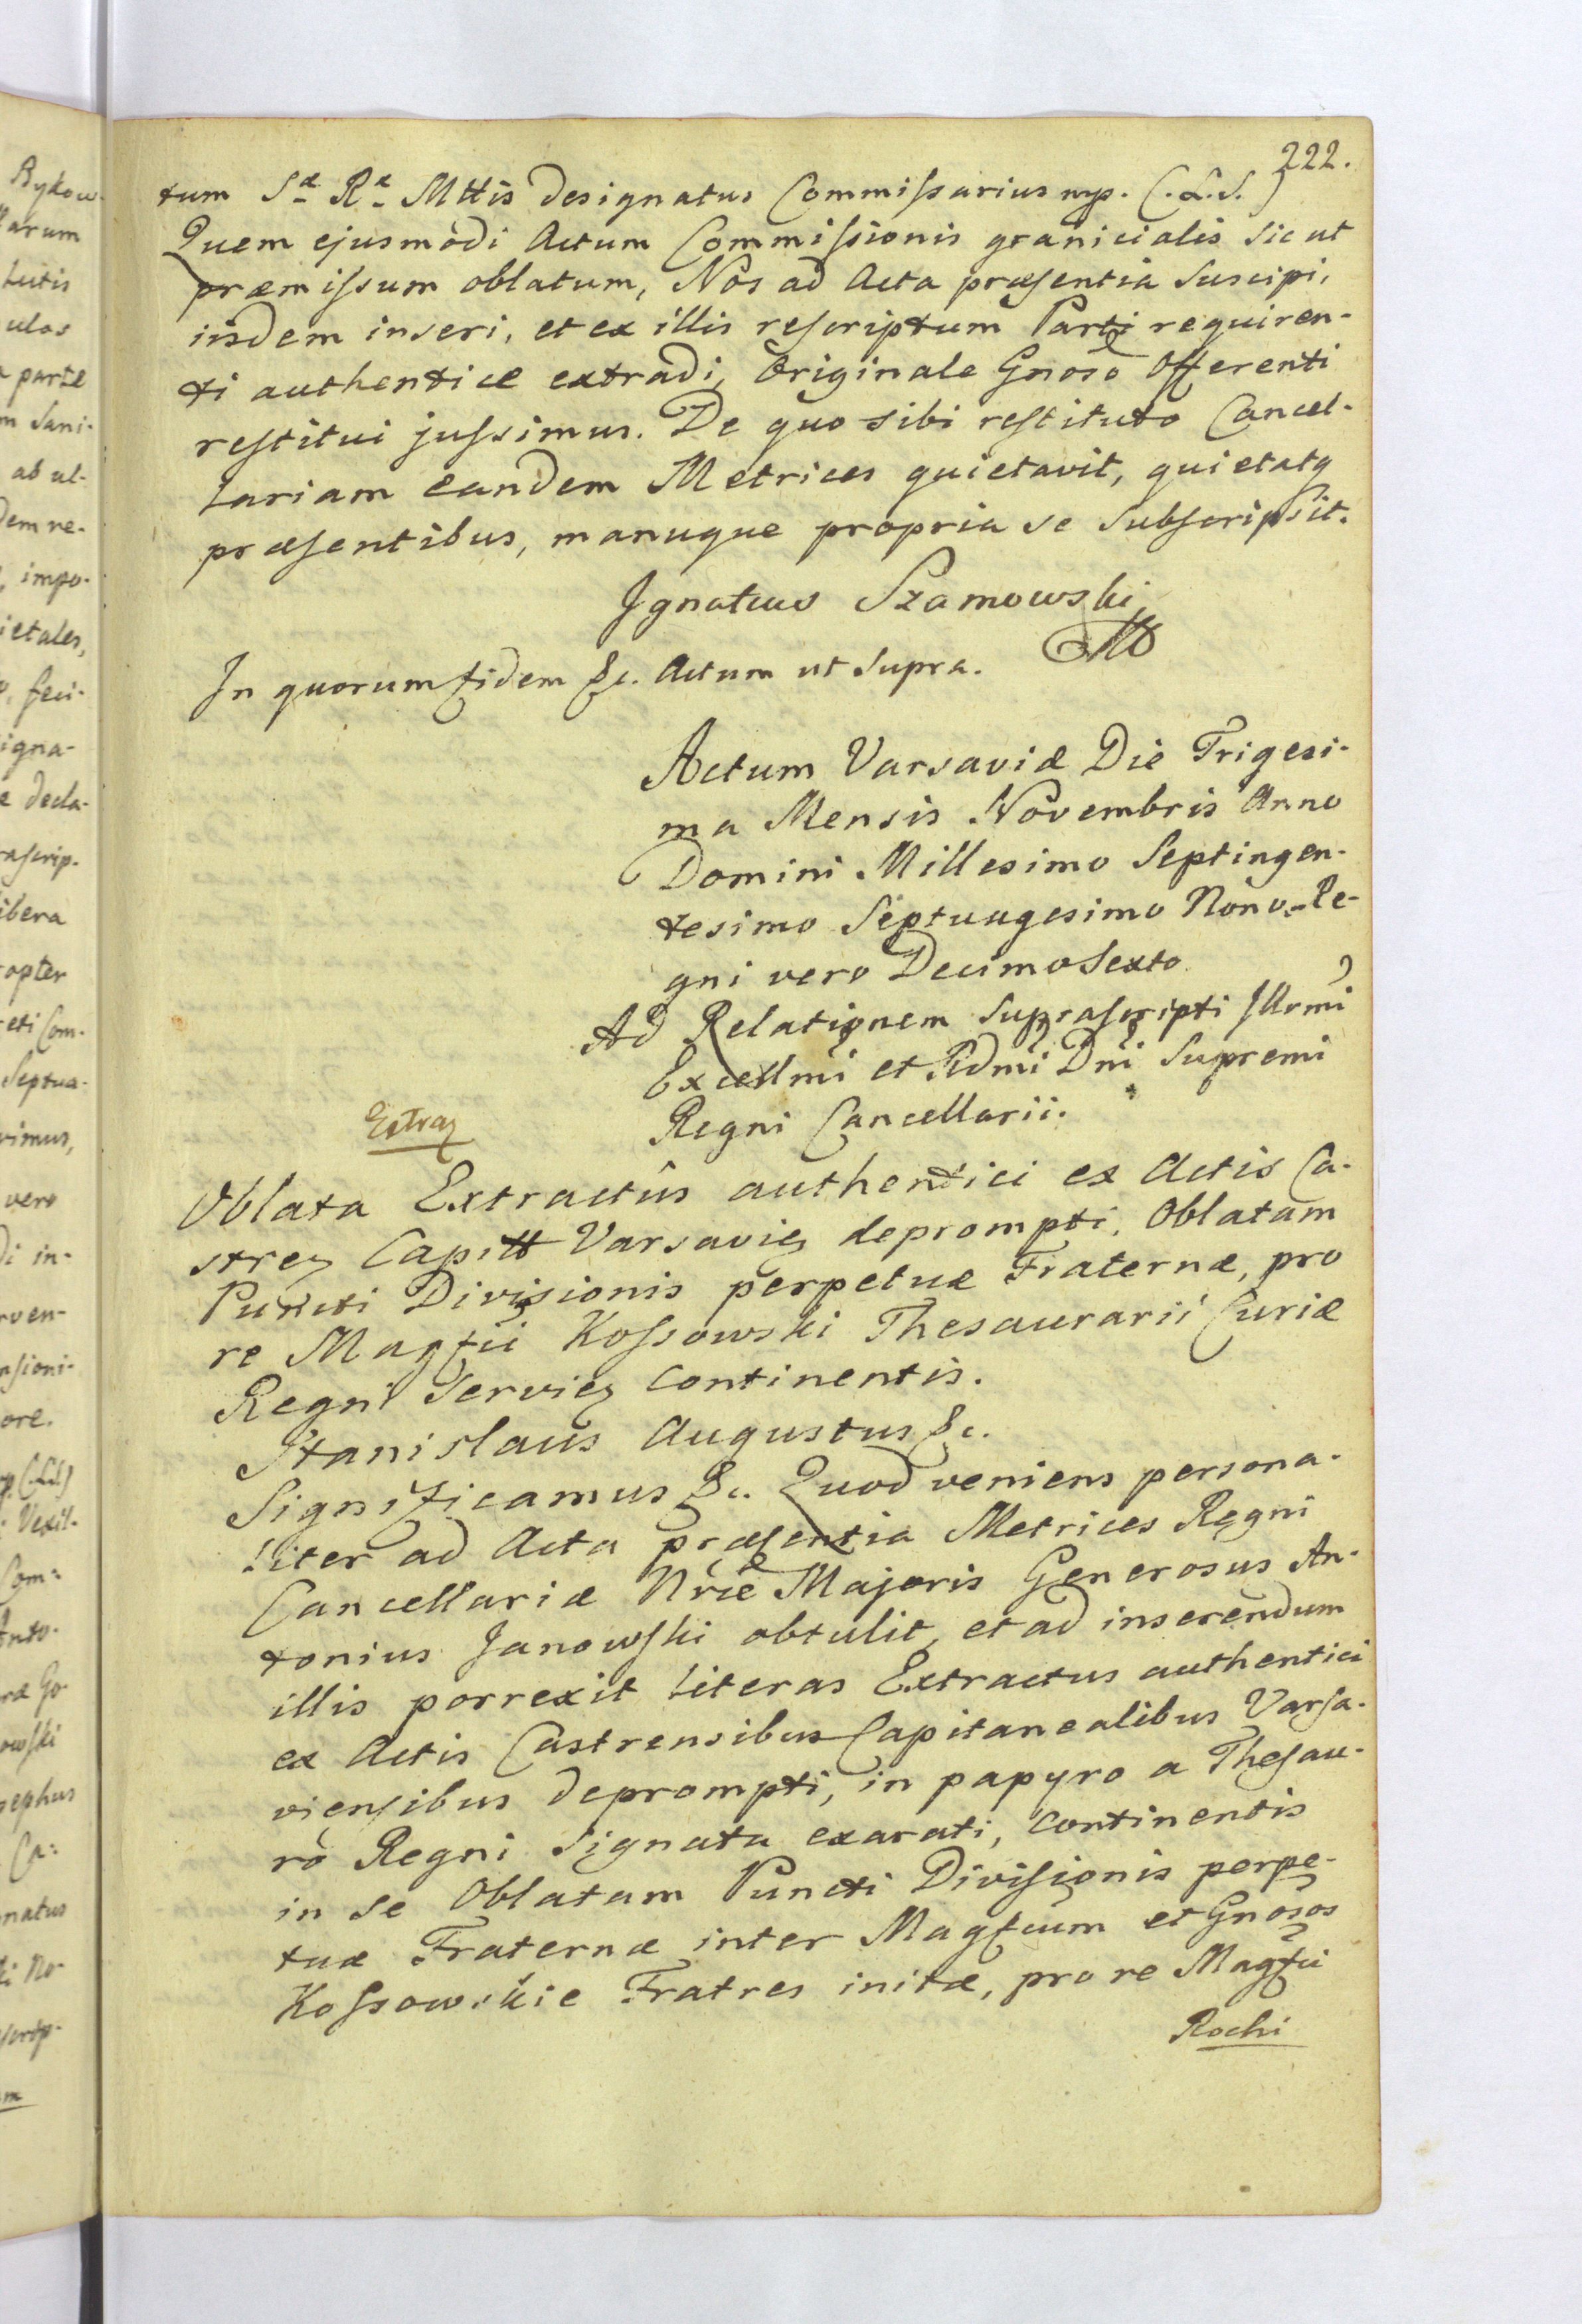 222.
tum Sæ Ræ Mttis designatus Commissarius mp. (.L.S.)
Quem ejusmodi Actum Commissionis granicialis sic ut
præmissum oblatum, Nos ad Acta præsentia suscipi,
iisdem inseri, et ex illis rescriptum Parti requiren-
ti authentice extradi, Originale Gnoso Offerenti
restitui jussimus. De quo sibi restituto Cancel-
lariam eandem Metrices quietavit, quietatq
præsentibus, manuque propria se subscripsit.
Ignatius Szamowski
In quorum fidem &c. Actum ut supra.
Actum Varsaviæ Die Trigesi-
ma Mensis Novembris Anno
Domini Millesimo Septingen-
tesimo Septuagesimo Nono, Re-
gni vero Decimo Sexto.
Ad Relationem suprascripti Illrmi
Excellmi et Rdmi Dni Supremi
Regni Cancellarii.
Extra
Oblata Extractûs authentici ex Actis Ca-
stren Capitt Varsavien deprompti, Oblatam
Puncti Divisionis perpetuæ Fraternæ, pro
re Magfci Kossowski Thesaurarii Curiæ
Regni Servien continentis.
Stanislaus Augustus &c.
Significamus &c. Quod veniens persona-
liter ad Acta præsentia Metrices Regni
Cancellariæ Nræ Majoris Generosus An-
tonius Janowski obtulit, et ad inserendum
illis porrexit literas Extractus authentici
ex Actis Castrensibus Capitanealibus Varsa-
viensibus deprompti, in papyro a Thesau-
ro Regni signata exarati, continentis
in se Oblatam Puncti Divisionis perpe-
tuæ Fraternæ inter Magfcum et Gnosos
Kossowskie Fratres initæ, pro re Magfci
Rochi